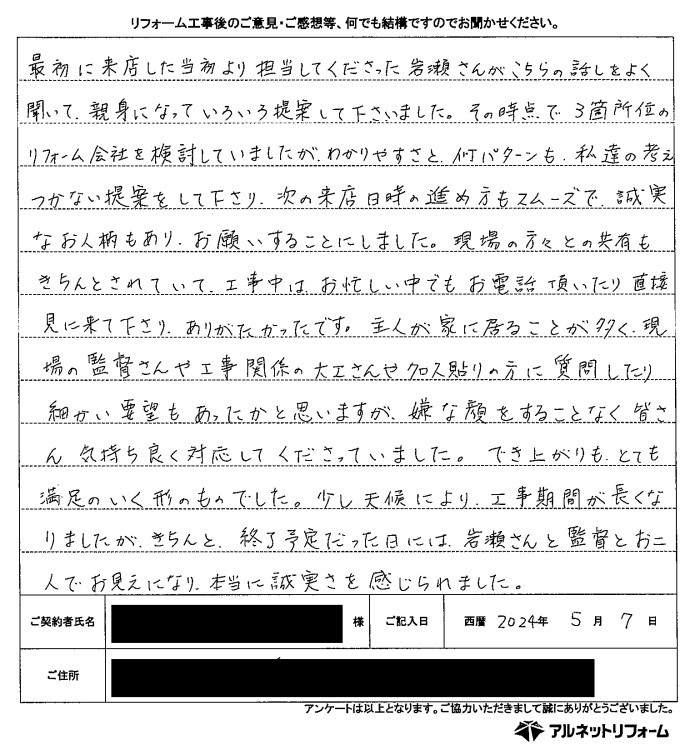 リフォーム工事後のご意見・ご感想等、何でも結構ですのでお聞かせください。
最初に来店した当初より担当してくださった岩瀬さんがこちらの話しをよく
聞いて、親身になっていろいろ提案して下さいました。その時点で3箇所位の
リフォーム会社を検討していましたが、わかりやすさと、何パターンも、私達の考え
つかない提案をして下さり、次の来店日時の進め方もスムーズで、誠実
なお人柄もあり、お願いすることにしました。現場の方々との共有も
きちんとされていて、工事中は、お忙しい中でもお電話頂いたり直接
見に来て下さり、ありがたかったです。主人が家に居ることが多く、現
場の監督さんや工事関係の大工さんやクロス貼りの方に質問したり
細かい要望もあったかと思いますが、嫌な顔をすることなく皆さ
ん気持ち良く対応してくださっていました。でき上がりも、とても
満足のいく形のものでした。少し天候により、工事期間が長くな
りましたが、きちんと、終了予定だった日には、岩瀬さんと監督とお二
人でお見えになり、本当に誠実さを感じられました。
ご契約者氏名 様 ご記入日 西暦 2024年 5月 7日
ご住所
アンケートは以上となります。ご協力いただきまして誠にありがとうございました。
アルネットリフォーム